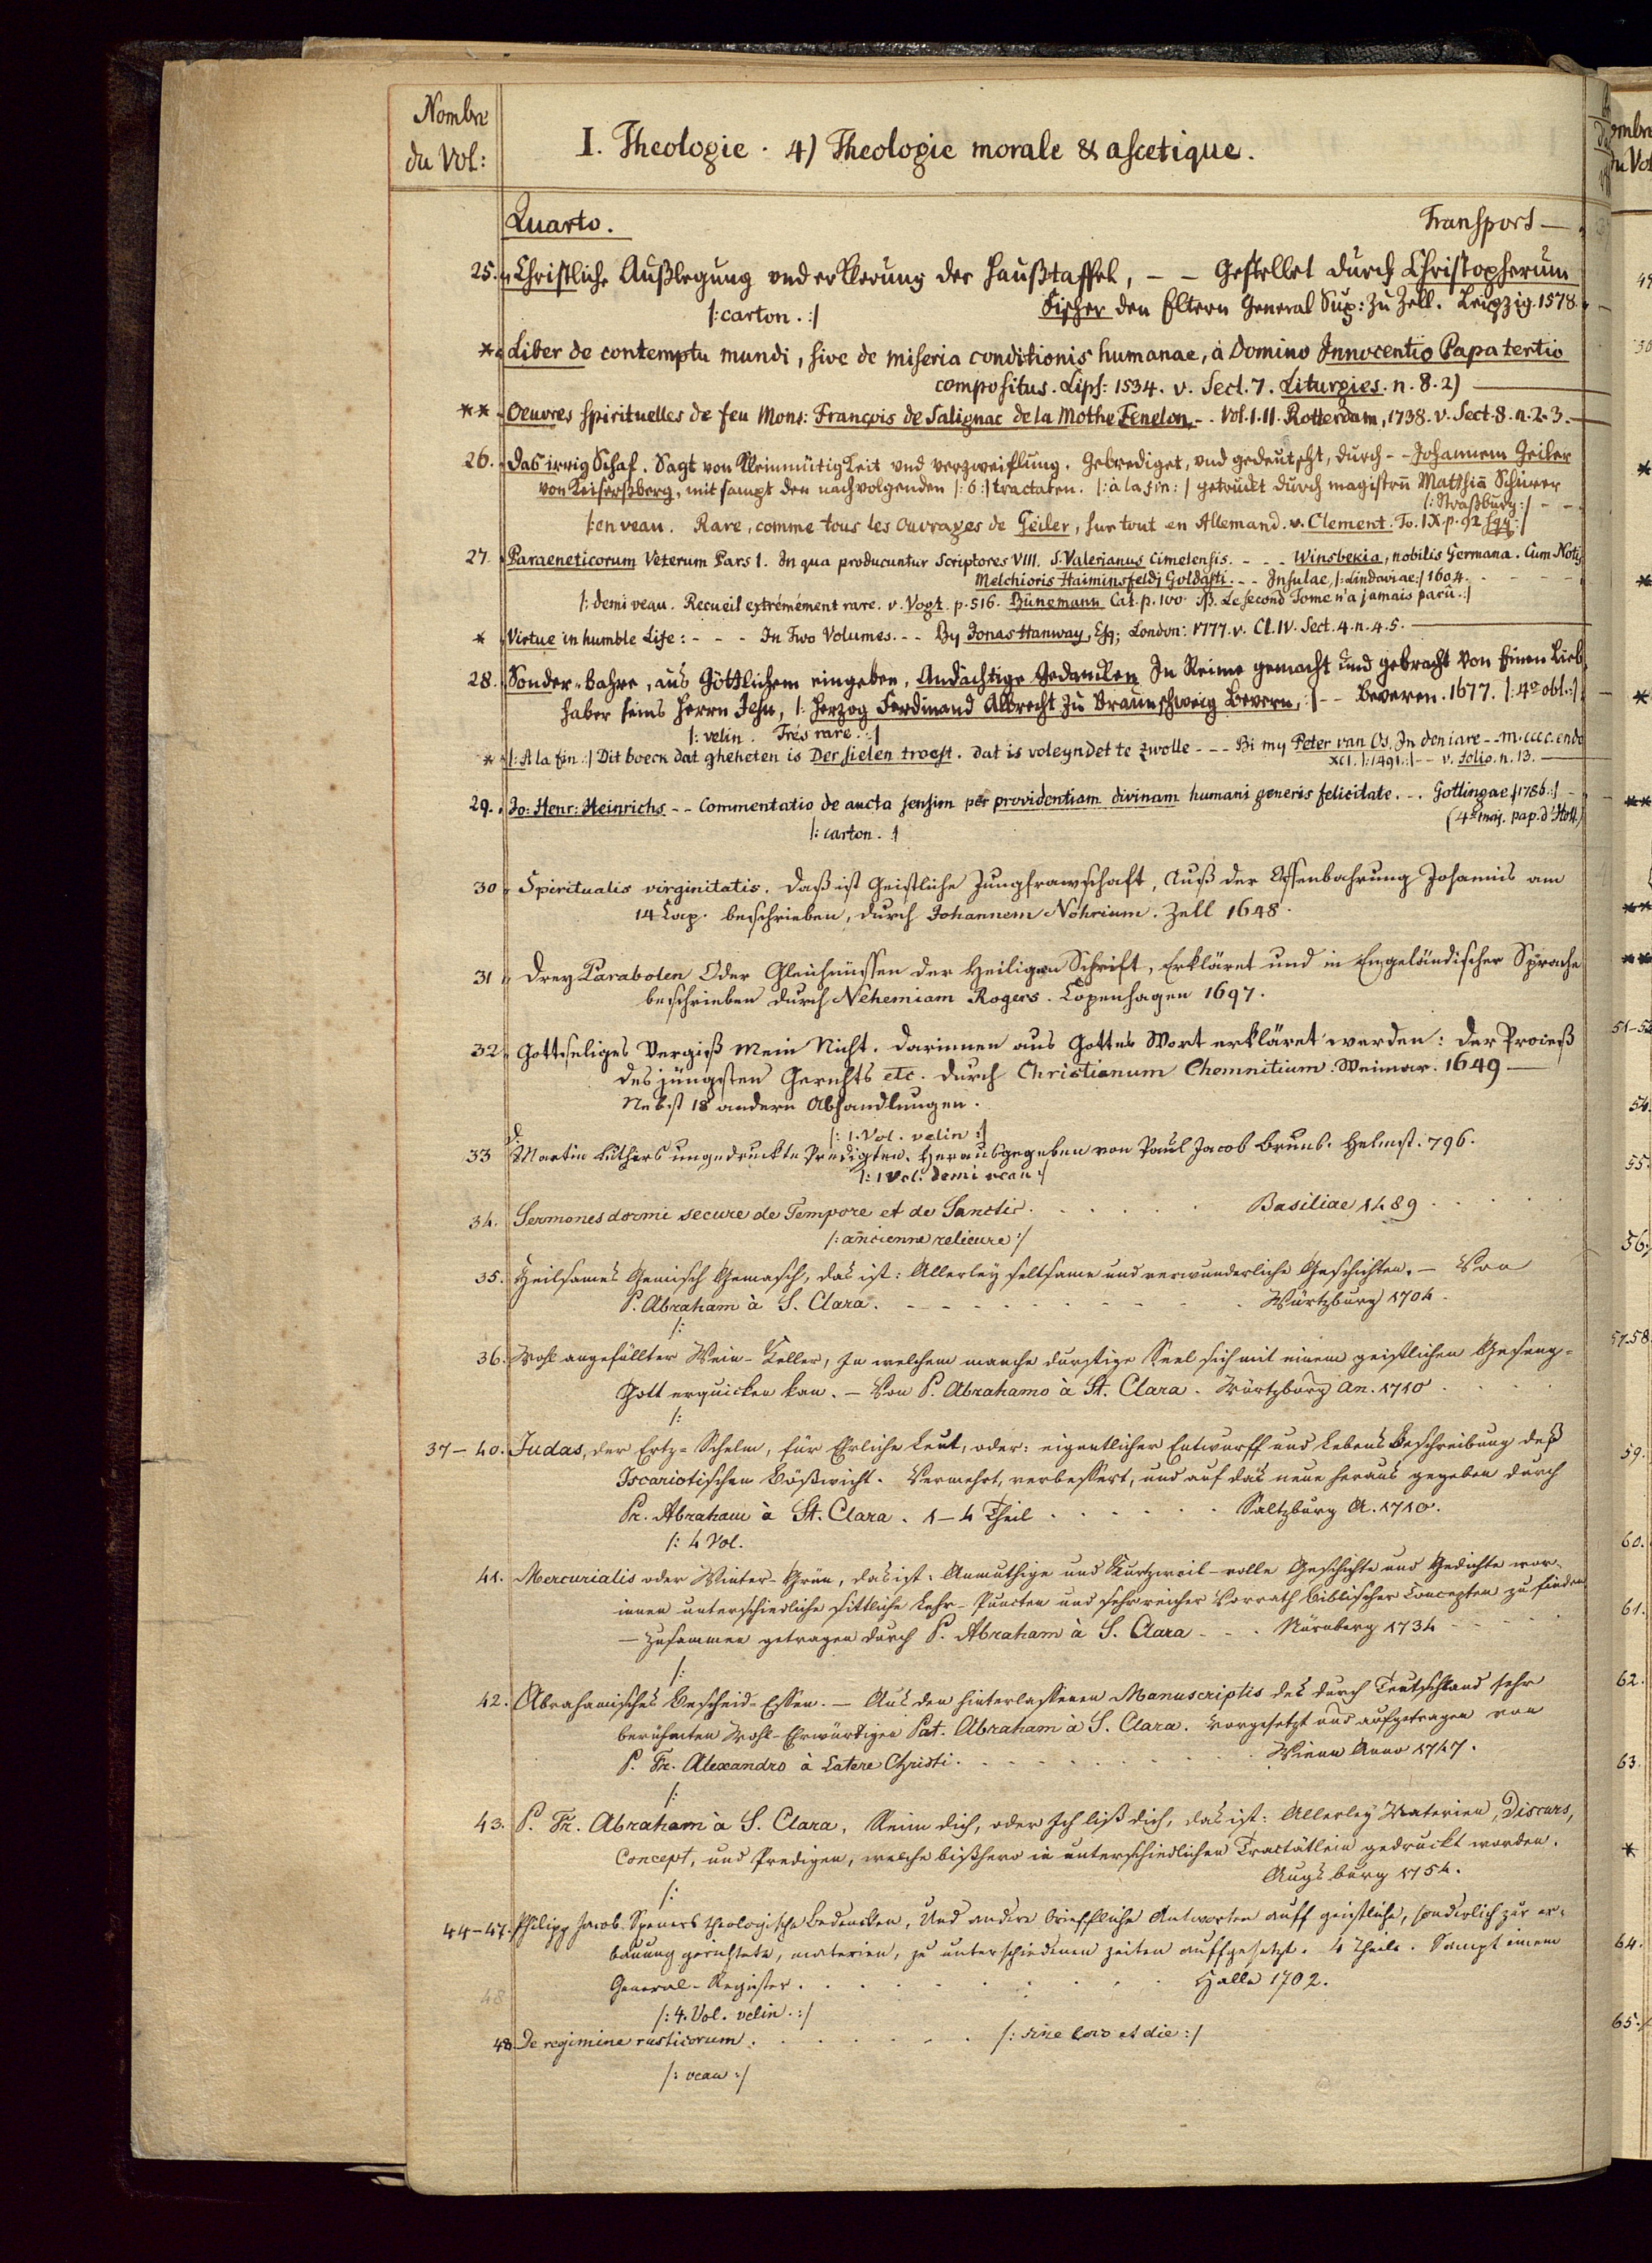 Nombre
du Vol:
I. Theologie. 4) Theologie morale & ascetique.
Quarto. Transport —
25. Christliche Außlegung vnd erklerung der Haußtaffel, – – Gestellet durch Christopherum
Fischer den Eltern General Sup: zu Zell. Leipzig. 1578.
/: carton. :/
* Liber de contemptu mundi, sive de miseria conditionis humanae, à Domino Innocentio Papa tertio
compositus. Lips: 1534. v. Sect. 7. Liturgies. n. 8. 2)
** Oeuvres spirituelles de feu Mons: François de Salignac de la Mothe Fenelon - - Vol. I. II. Rotterdam, 1738. v. Sect. 8. n. 2. 3.
26. Das irrig Schaf. Sagt von Kleinmütigkeit vnd verzweiflung. Gebrediget, vnd gedeutscht, durch - - Johannem Geiler
von Keiserßberg, mit sampt den nachvolgenden /: 6 :/ tractaten. /: à la fin: / getruckt durch magistrũ Matthiã Schürer
/: Straßburg :/ - -
/: en veau. Rare, comme tous les Ouvrages de Geiler, sur tout en Allemand. v. Clement. To. IX. p. 92 sqq :/
27. Paraeneticorum Veterum Pars I. In qua producuntur Scriptores VIII. S. Valerianus Cimelensis. - - - Winsbekia, nobilis Germana. Cum Notis
Melchioris Haiminsfeldj Goldasti. - - Insulae, /: Lindaviae :/ 1604. - - - -
/: demi veau. Recueil extrémément rare. v. Vogt. p. 516. Bünemann Cat. p. 100. NB. Le second Tome n'a jamais parû. :/
* Virtue in humble Life: - - - In Two Volumes. - - By Jonas Hanway, Esq; London: 1777. v. Cl. IV. Sect. 4. n. 4. 5.
28. Sonder-bahre, aus Göttlichem eingeben, Andächtige Gedancken In Reime gemacht und gebracht Von Einem Lieb
haber seins Herrn Jesu, /: Herzog Ferdinand Albrecht zu Braunschweig Bevern, :/ - - Beveren. 1677. /: 4o obl. :/
/: velin. Trés rare. :/
* /: A la fin :/ Dit boeck dat gheheten is Der sielen troest. dat is voleyndet te Zwolle - - - Bi my Peter van Os. In den iare - - m.cccc. ende
XCI. /: 1491. :/ - - v. Folio. n. 13.
29. Jo: Henr: Heinrichs - - Commentatio de aucta sensim per providentiam divinam humani generis felicitate. - . Gottingae /: 1786. :/ -
(4o maj. pap. d'Holl.)
/: carton. :/
30. Spiritualis virginitatis. Daß ist Geistliche Jungfrawschaft, Auß der Offenbahrung Johannis am
14 Cap. beschrieben, durch Johannem Nöhrium. Zell 1648.
31. Drey Parabolen Oder Gleichnüssen der Heiligen Schrift, Erkläret und in Engeländischer Sprache
beschrieben durch Nehemiam Rogers. Copenhagen 1697.
32. Gottseliges Vergiß Mein Nicht. Darinnen aus Gottes Wort erkläret werden: Der Proceß
des jüngsten Gerichts etc. durch Christianum Chemnitium. Weimar. 1649 —
Nebst 18 andern Abhandlungen.
/: 1. Vol. velin :/
33 D. Martin Luthers ungedruckte Predigten. Herausgegeben von Paul Jacob Bruns. Helmst. 796.
/: 1 Vol. demi veau :/
34. Sermones dormi secure de Tempore et de Sanctis. . . . . . Basiliae 1489 . . . .
/: ancienne relieure :/
35. Heilsames Gemisch Gemasch, das ist: Allerley seltsame und verwunderliche Geschichten. — Von
P. Abraham à S. Clara. - - - - - - - - Würtzburg 1704.
/:
36. Wohl angefüllter Wein-Keller, In welchem manche durstige Seel sich mit einem geistlichen Gesegn-
Gott erquicken kan. — Von P. Abrahamo à St. Clara. Würtzburg An. 1710 . . . .
/:
37 – 40. Judas, der Ertz-Schelm, für Ehrliche Leut, oder: eigentlicher Entwurff und Lebens Beschreibung deß
Iscariotischen Bößwicht. Vermehrt, verbessert, und auf das neue heraus gegeben durch
Pr. Abraham à St. Clara. 1–4 Theil . . . . . . Saltzburg A. 1710.
/: 4 Vol.
41. Mercurialis oder Winter-Grün, das ist: Anmuthige und Kurtzweil-volle Geschichte und Gedichte wor-
innen unterschiedliche sittliche Lehr-Puncten und sehr reicher Vorrath biblischer Concepten zu finden
— Zusammen getragen durch P. Abraham à S. Clara - - . Nürnberg 1734 - -
/:
42. Abrahamisches Bescheid-Essen. — Aus den hinterlassenen Manuscriptis des durch Teutschland sehr
berühmten Wohl-Ehrwürdigen Pat. Abraham à S. Clara. Vorgesetzt und aufgetragen von
P. Fr. Alexandro à Latere Christi. - - - - - - Wienn Anno 1747.
/:
43. P. Fr. Abraham à S. Clara, Reim dich, oder Ich liß dich, das ist: Allerley Materien, Discurs,
Concept, und Predigen, welche bißhero in unterschiedlichen Tractätlein gedruckt worden.
Augsburg 1754.
/:
44–47. Philipp Jacob Speners theologische Bedencken, Und andere brieffliche Antworten auff geistliche, sonderlich zur er-
bauung gerichtete, materien, zu unterschiedenen zeiten auffgesetzt. 4 Theile. Sampt einem
General-Register. . . . . . . . . Halle 1702.
48
/: 4. Vol. velin. :/
48 De regimine rusticorum. . . . . . . /: sine loco et die :/
/: veau :/